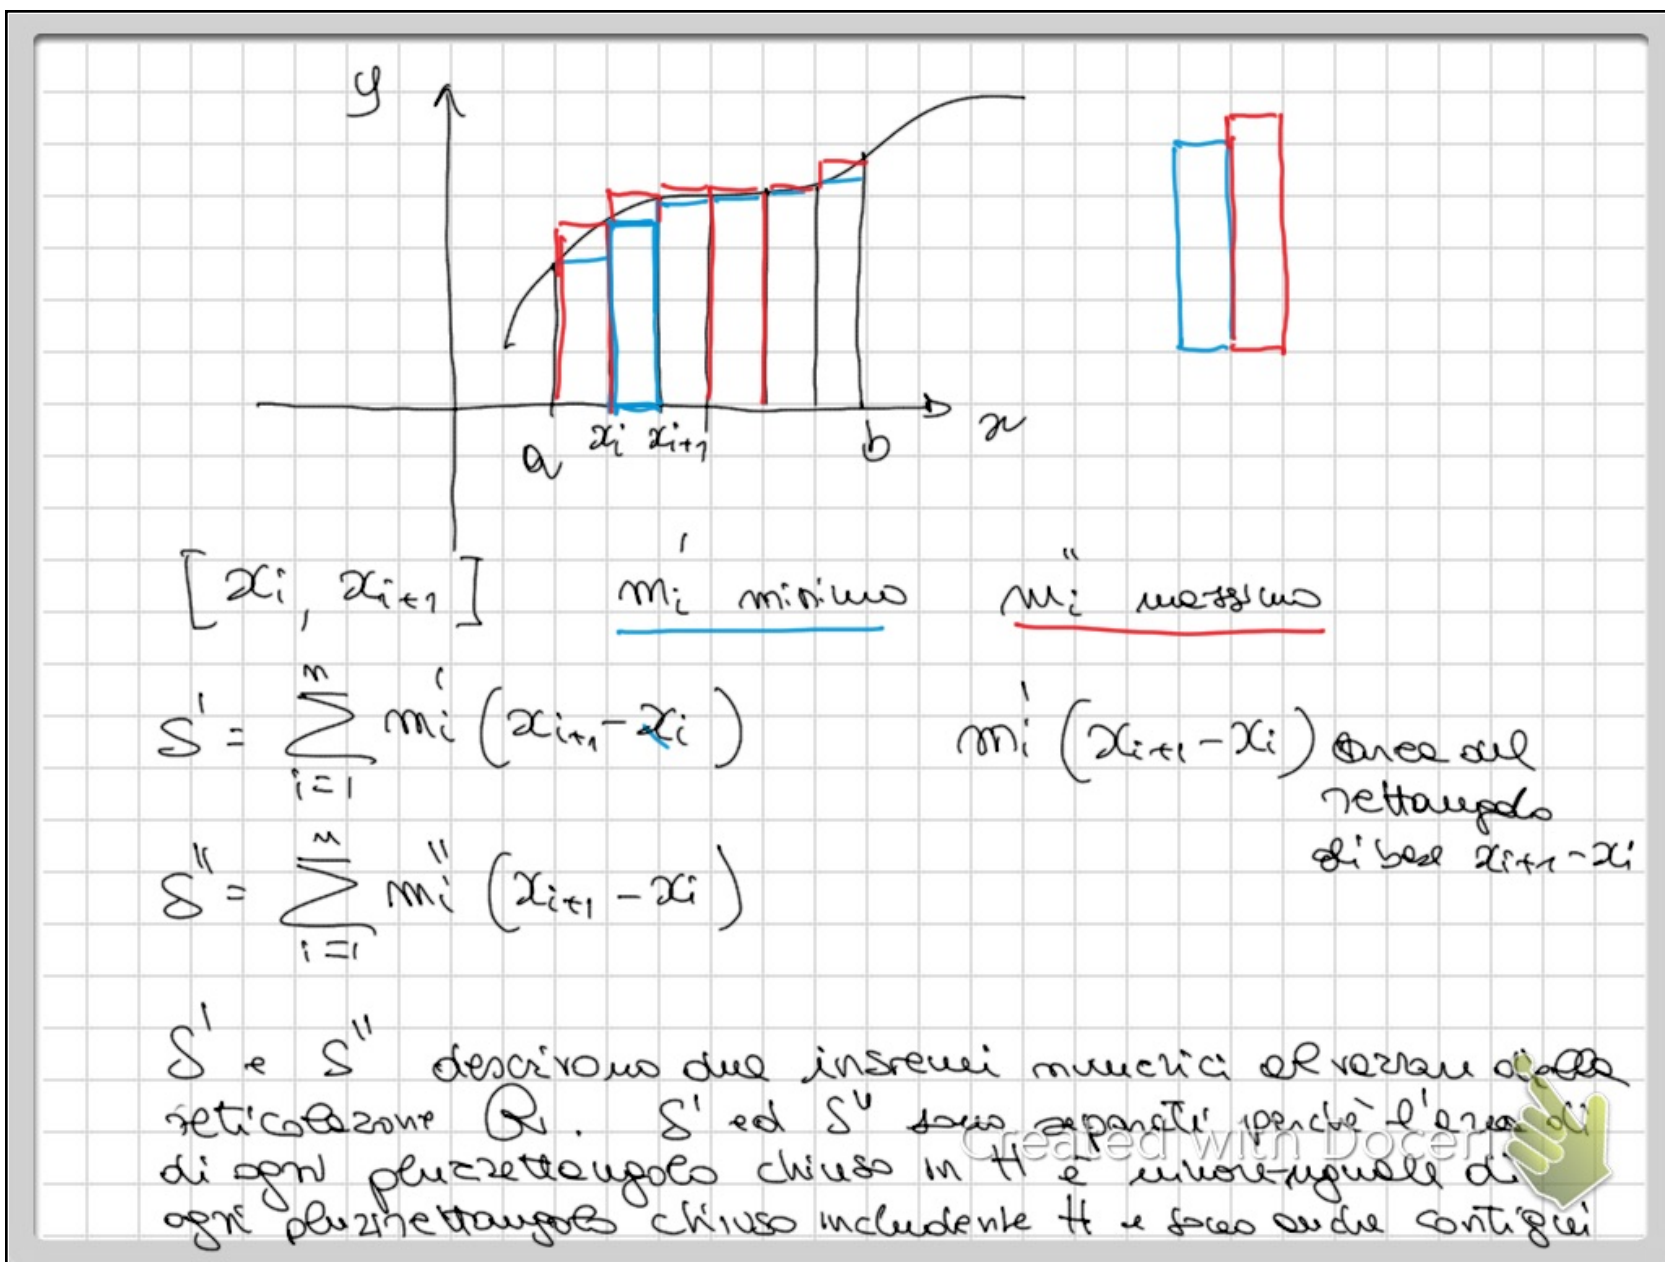 y
a xi xi+1 b x
[xi, xi+1] mi' minimo mi'' massimo
S' = ∑ i=1 n mi' (xi+1 - xi) mi' (xi+1 - xi) area del
rettangolo
di base xi+1 - xi
S'' = ∑ i=1 n mi'' (xi+1 - xi)
S' e S'' descrivono due insiemi numerici al variare della
reticolazione R. S' ed S'' sono separati perchè l'area di
di ogni plurirettangolo chiuso in H è minore-uguale di
ogni plurirettangolo chiuso includente H e sono anche contigui
Created with Docer